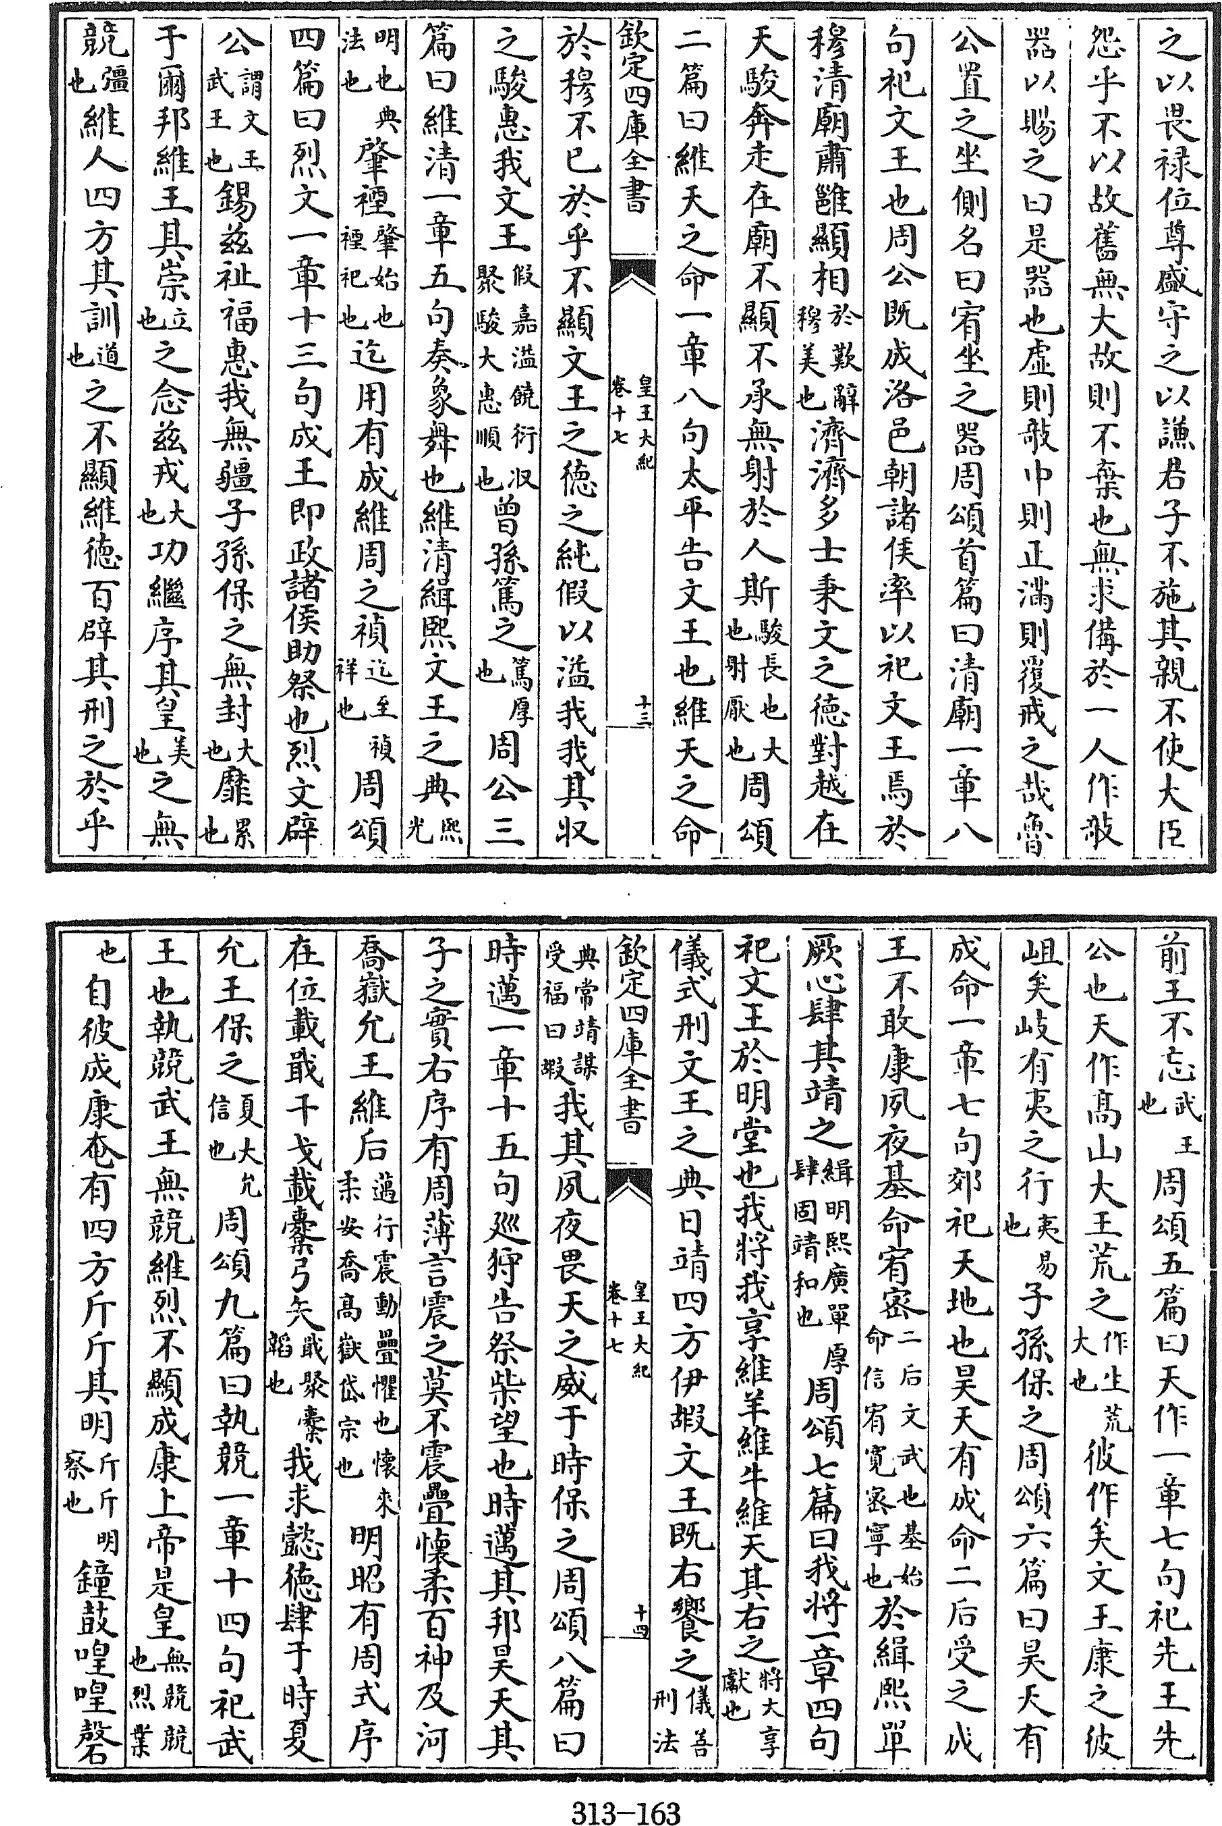 之以畏祿位尊盛守之以謙君子不施其親不使大臣
怨乎不以故舊無大故則不棄也無求備於一人作敧
器以賜之曰是器也虛則敧中則正滿則覆戒之哉魯
公置之坐側名曰宥坐之器周頌首篇曰清廟一章八
句祀文王也周公既成洛邑朝諸侯率以祀文王焉於
穆清廟肅雝顯相於歎辭穆美也濟濟多士秉文之德對越在
天駿奔走在廟不顯不承無射於人斯駿長也大也射厭也周頌
二篇曰維天之命一章八句太平告文王也維天之命
欽定四庫全書 皇王大紀 卷十七 十三
於穆不已於乎不顯文王之德之純假以溢我我其收
之駿惠我文王假嘉溢饒衍收聚駿大惠順也曾孫篤之篤厚也周公三
篇曰維清一章五句奏象舞也維清緝熙文王之典熙光
明也典法也肇禋肇始也禋祀也迄用有成維周之禎迄至禎祥也周頌
四篇曰烈文一章十三句成王即政諸侯助祭也烈文辟
公謂文王武王也錫茲祉福惠我無疆子孫保之無封大也靡累也
于爾邦維王其崇立也之念茲戎大也功繼序其皇美也之無
競彊也維人四方其訓道也之不顯維德百辟其刑之於乎
前王不忘武王也周頌五篇曰天作一章七句祀先王先
公也天作高山大王荒之作生荒大也彼作矣文王康之彼
岨矣岐有夷之行夷易也子孫保之周頌六篇曰昊天有
成命一章七句郊祀天地也昊天有成命二后受之成
王不敢康夙夜基命宥密二后文武也基始命信宥寬密寧也於緝熙單
厥心肆其靖之緝明熙廣單厚肆固靖和也周頌七篇曰我將一章四句
祀文王於明堂也我將我享維羊維牛維天其右之將大享獻也
儀式刑文王之典日靖四方伊嘏文王既右饗之儀善刑法
欽定四庫全書 皇王大紀 卷十七 十四
典常靖謀受福曰嘏我其夙夜畏天之威于時保之周頌八篇曰
時邁一章十五句廵狩告祭柴望也時邁其邦昊天其
子之實右序有周薄言震之莫不震疊懷柔百神及河
喬嶽允王維后邁行震動疊懼也懷來柔安喬高嶽岱宗也明昭有周式序
在位載戢干戈載櫜弓矢戢聚櫜韜也我求懿德肆于時夏
允王保之夏大允信也周頌九篇曰執競一章十四句祀武
王也執競武王無競維烈不顯成康上帝是皇無競競也烈業
也自彼成康奄有四方斤斤其明斤斤明察也鐘鼓喤喤磬
313-163